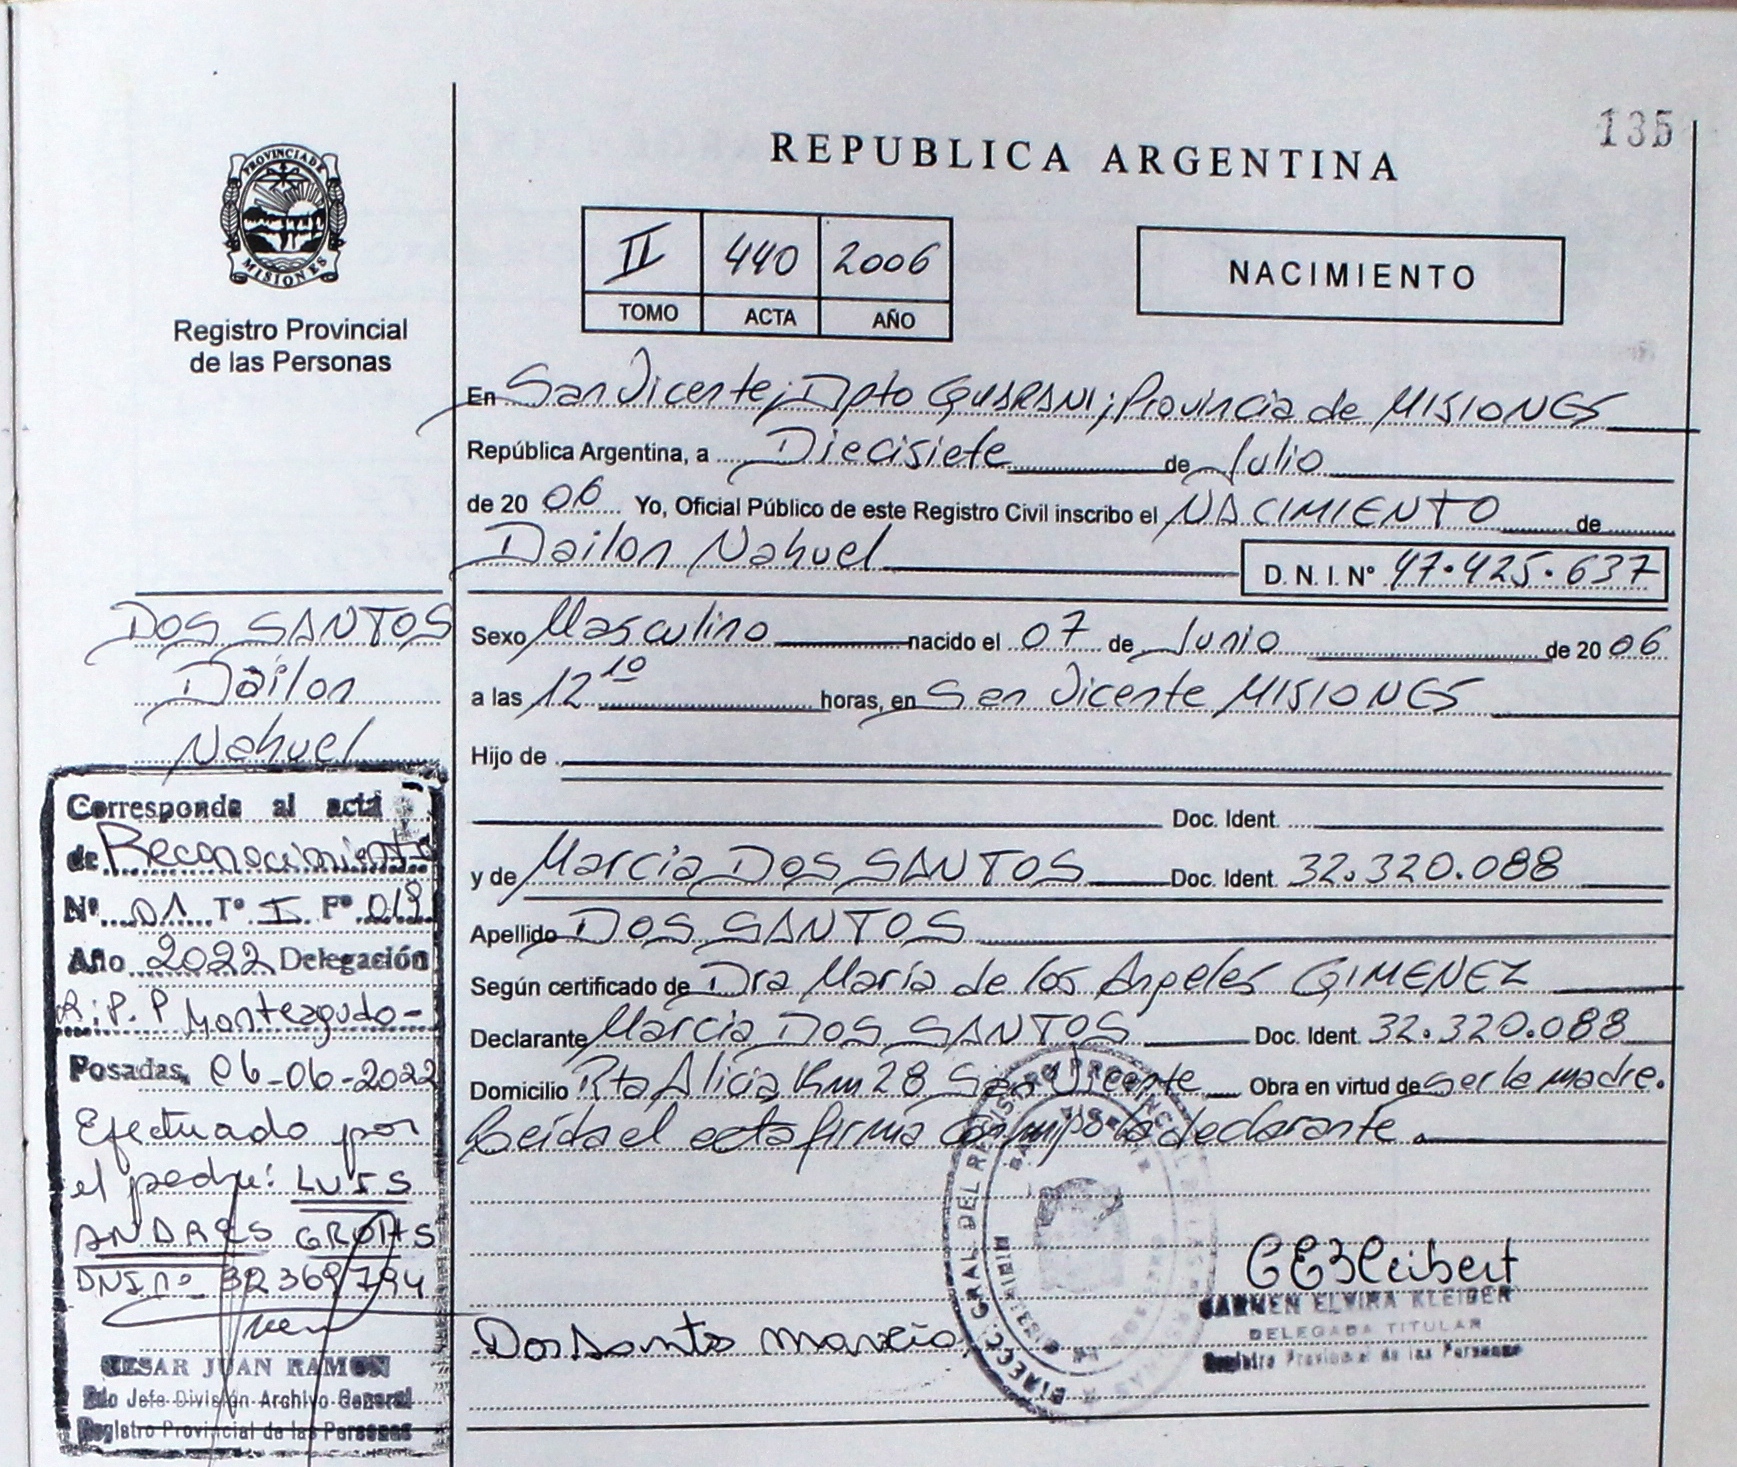 135
PROVINCIA DE
MISIONES
Registro Provincial
de las Personas
REPUBLICA ARGENTINA
II 440 2006
TOMO ACTA AÑO
NACIMIENTO
En San Vicente; Dpto GUARANI; Provincia de MISIONES
República Argentina, a Diecisiete de Julio
de 20 06 Yo, Oficial Público de este Registro Civil inscribo el NACIMIENTO de
Dailon Nahuel D. N. I. Nº 47.425.637
Sexo Masculino nacido el 07 de Junio de 20 06
a las 12 10 horas, en San Vicente MISIONES
Hijo de
Doc. Ident.
y de Marcia DOS SANTOS Doc. Ident. 32.320.088
Apellido DOS SANTOS
Según certificado de Dra Maria de los Angeles GIMENEZ
Declarante Marcia DOS SANTOS Doc. Ident. 32.320.088
Domicilio Rta Alicia Km 28 San Vicente Obra en virtud de ser la madre.
Leida el acta firma conmigo la declarante.
Dos Santos Marcia
CARMEN ELVIRA KLEIBER
DELEGADA TITULAR
Registro Provincial de las Personas
DIRECC. GRAL. DEL REGISTRO PROVINCIAL DE LAS PERSONAS
DOS SANTOS
Dailon
Nahuel
Corresponde al acta
de Reconocimiento
Nº 01 Tº I Fº 019
Año 2022 Delegación
R.P.P Monteagudo-
Posadas, 06-06-2022
Efectuado por
el padre: LUIS
ANDRES GROHS
DNI nº 32369794
CESAR JUAN RAMON
Jefe División Archivo General
Registro Provincial de las Personas